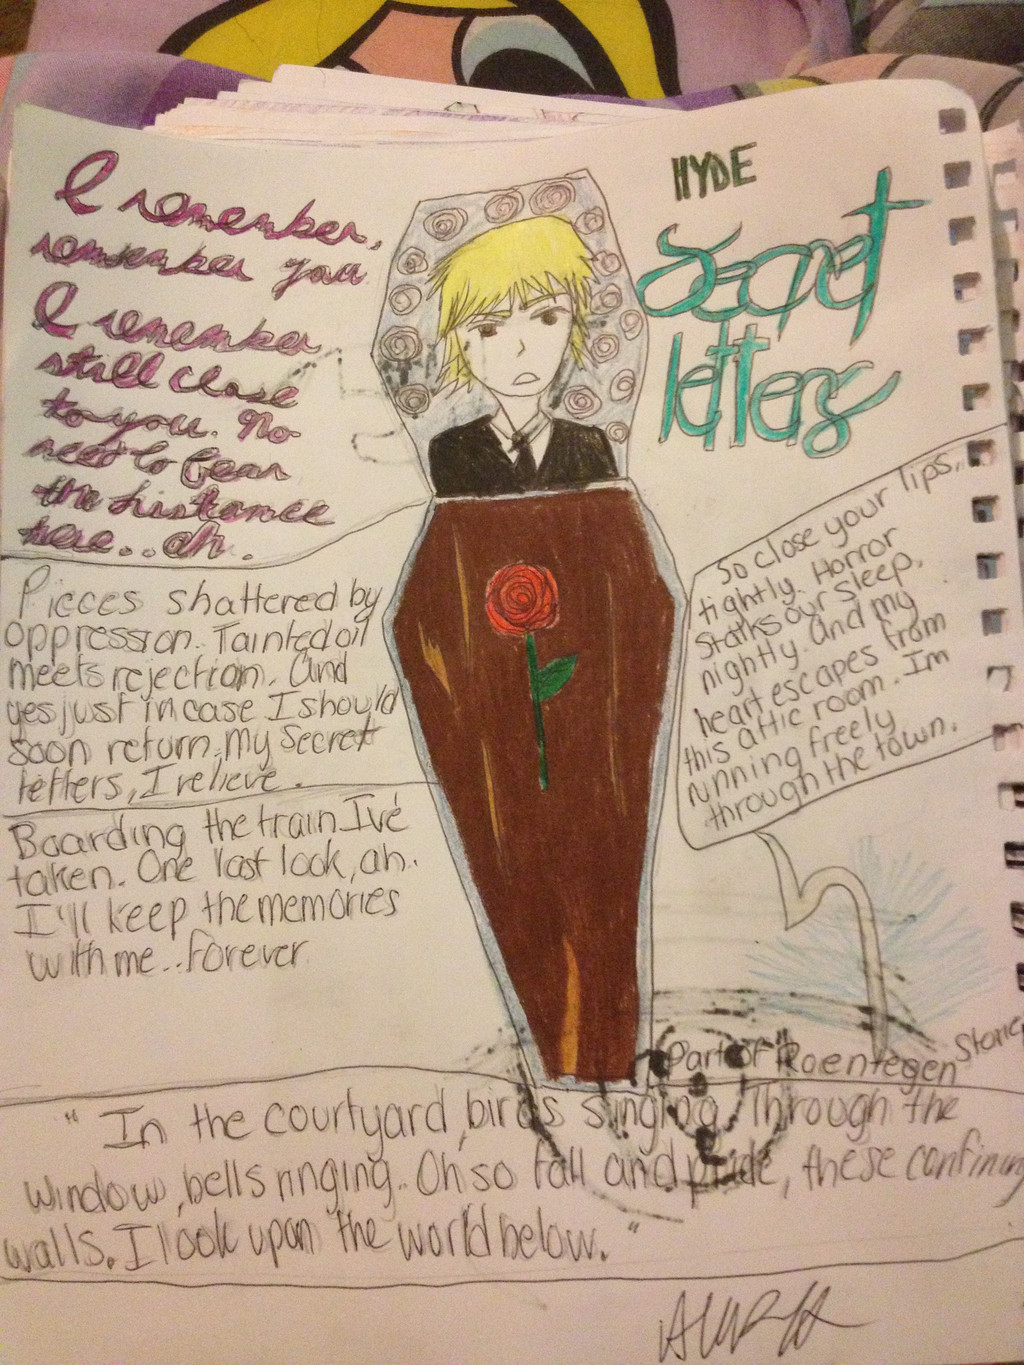 I remember,
remember you
I remember
still close
to you. No
need to bear
the histance
here...ah.
HYDE
Secret
letters
Pieces shattered by
oppression. Tainted oil
meets rejection. and
yes just in case I should
soon return, my secret
letters, I relieve.
Boarding the train I've
taken. One last look, ah.
I'll keep the memories
with me...forever
So close your lips..
tightly. Horror
stalks our sleep,
nightly. and my
heart escapes from
this attic room. Im
running freely
through the town.
Part of Roentegen Stories
"In the courtyard, birds singing. Through the
window, bells ringing.. Oh so tall and plide, these confining
walls. I look upon the world below."